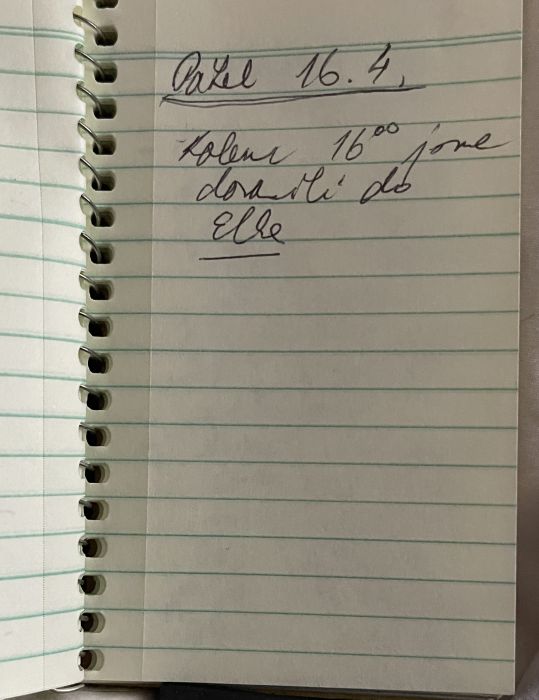 Pátek 16. 4.
Kolem 16⁰⁰ jsme
dorazili do
Elbe